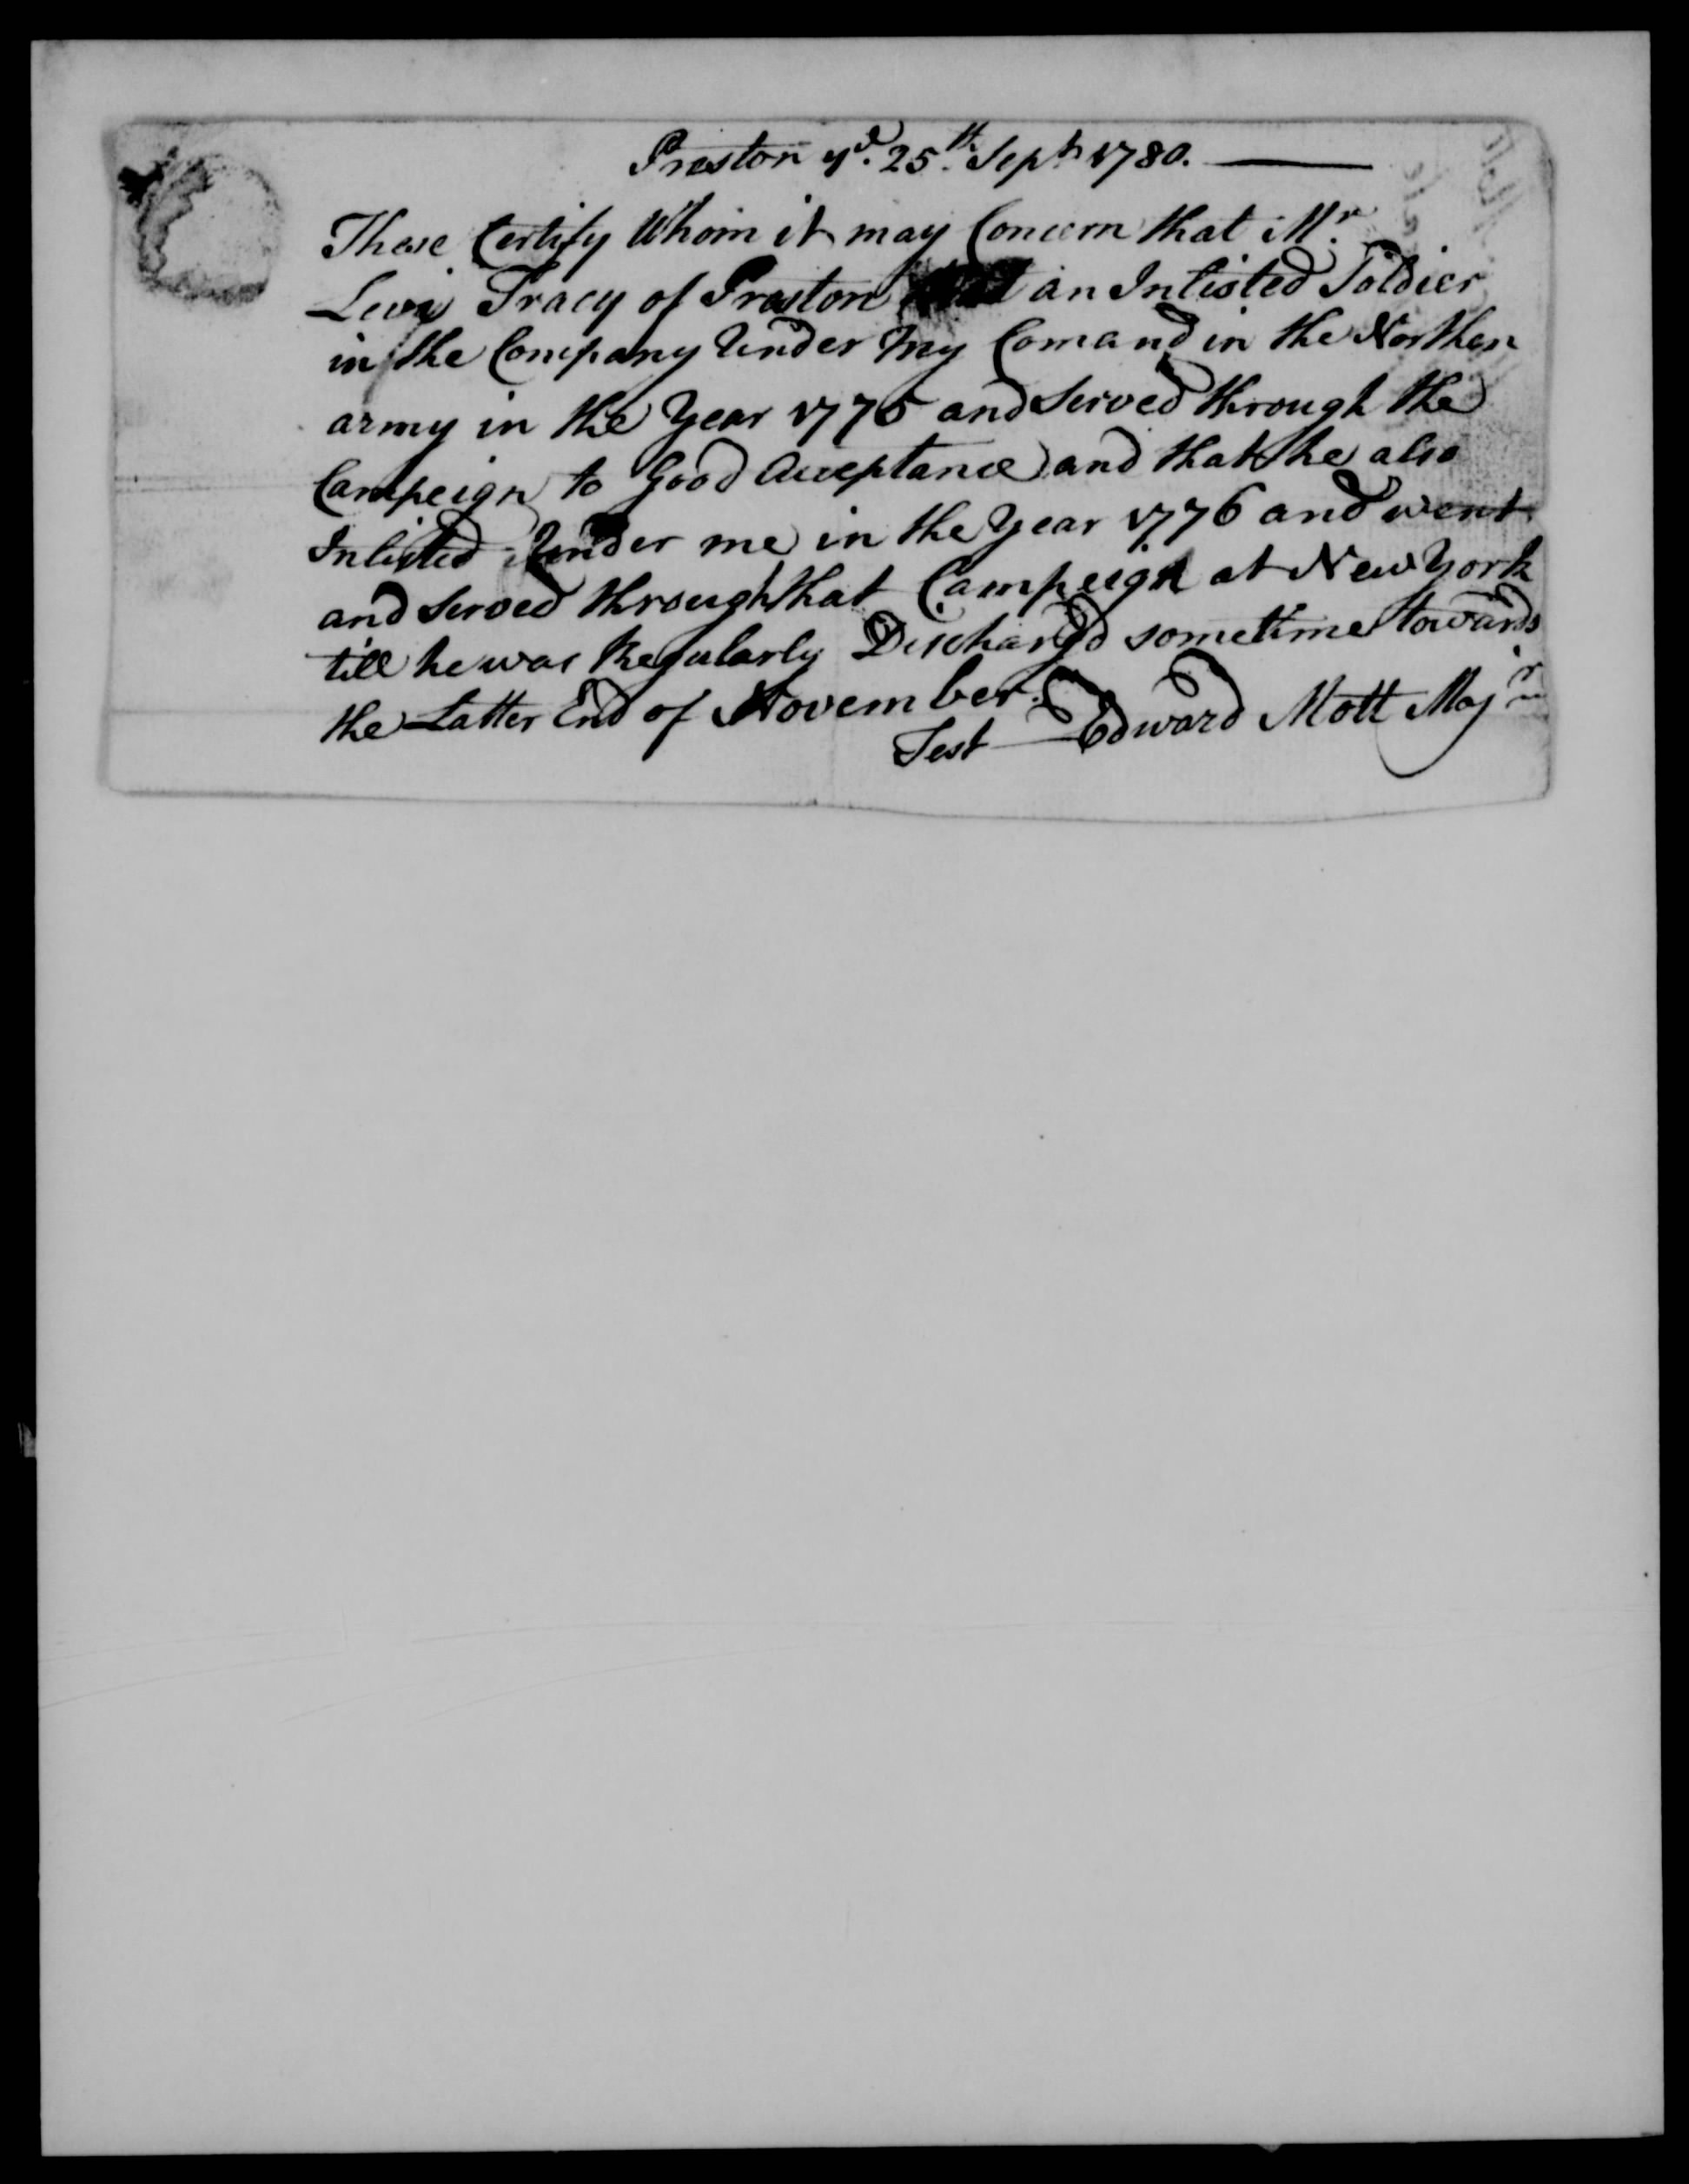 Preston ye. 25th. Sept 1780.
These Certify Whom it may Concern that Mr.
Levi Tracy of Preston an Inlisted Soldier
in the Company Under my Comand in the Northen
army in the Year 1775 and Served through the
Campeign to Good Acceptance and that he also
Inlisted Under me in the Year 1776 and went
and Served through that Campeign at New York
till he was Regularly Discharg'd sometime towards
the Latter End of November.
Test Edward Mott Majr